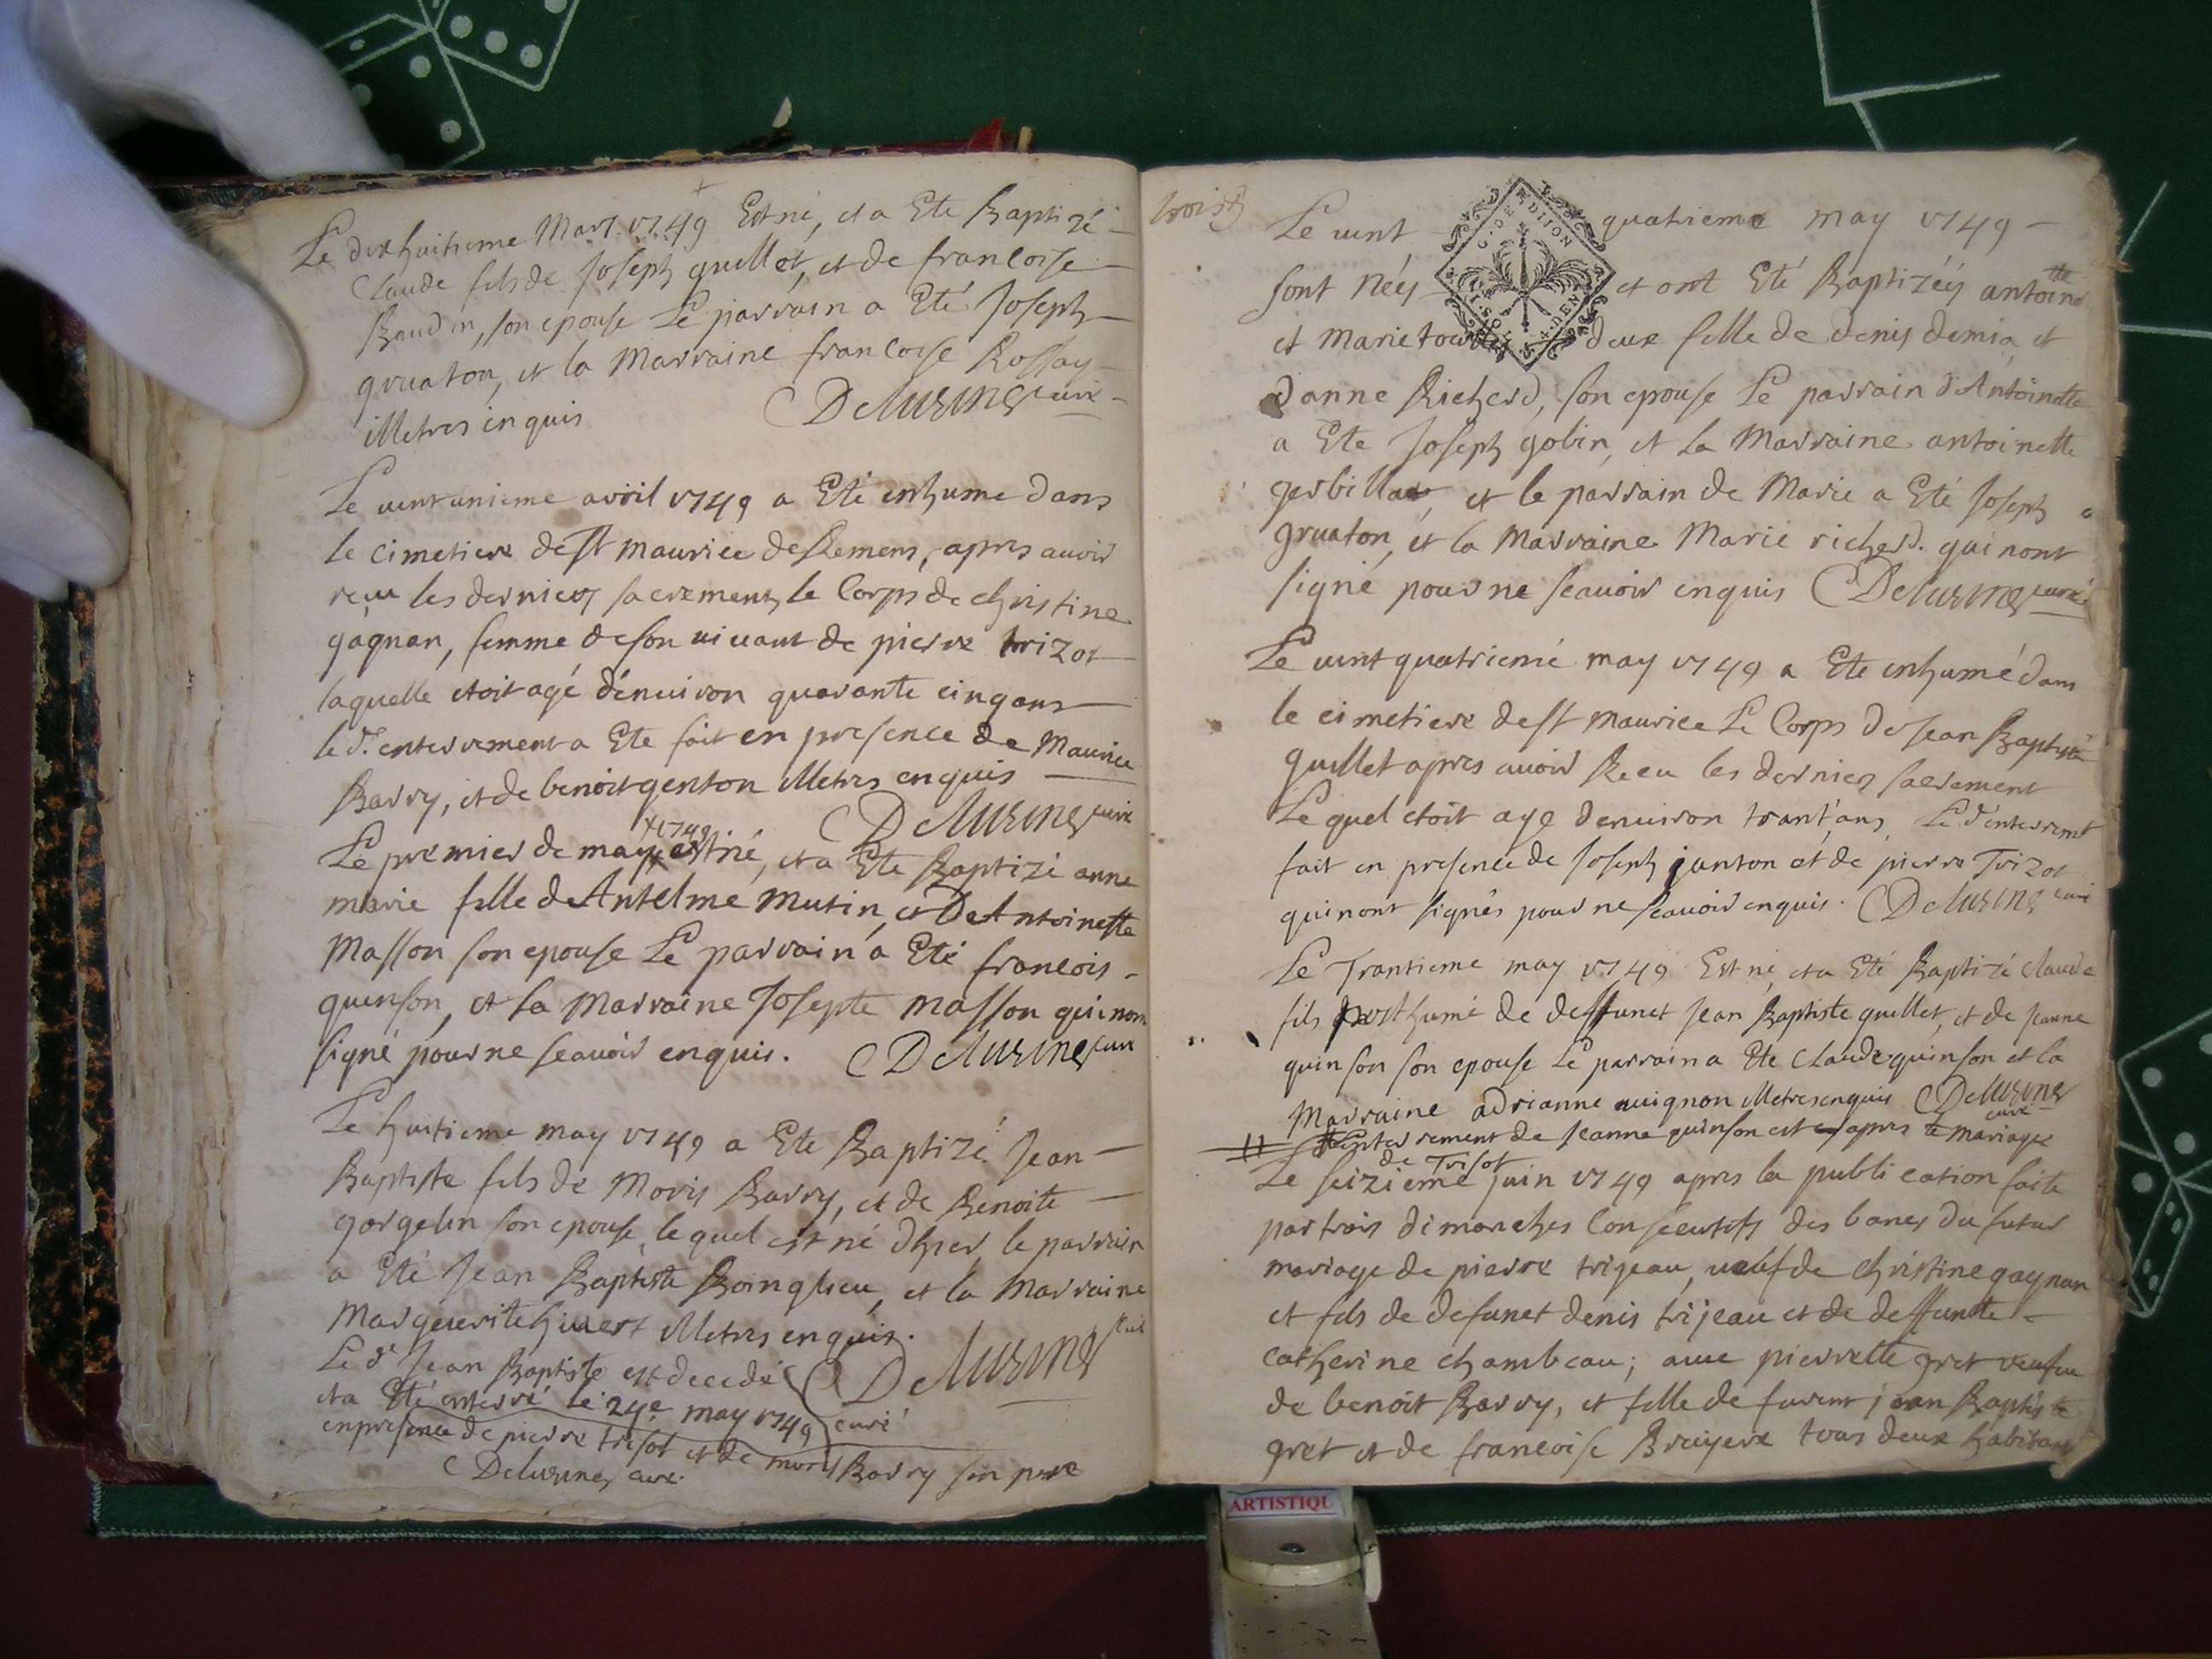 Le dix huitieme Mars 1749 Est né, et a Eté Baptizé
Claude fils de Joseph quillet, et de francoise
Baudin, son epouse Le parrain a Eté Joseph
gruaton, et la Marraine francoise Rossay
illetres enquis Delusines curé
Le vint unieme avril 1749 a Eté enhume dans
le cimetiere de St maurice de Remens, apres auoir
reçu les derniers sacrements le Corps de christine
gagnan, femme de son uiuant de pierre trizot
laquelle etoit agé d'enuiron quarante cinq ans
le d. enterrement a Ete fait en presence de Maurice
Barry, et de benoit genton illetres enquis
Delusines curé
Le premier de may +1749 est né, et a Ete Baptizé anne
marie fille de Antelme mutin, et De Antoinette
Masson son epouse Le parrain a Eté francois
quinson, et la Marraine Josepte masson qui nont
signé pour ne scauoir enquis. Delusines curé
Le huitieme may 1749 a Ete Baptizé Jean
Baptiste fils de Moris Barry, et de Benoite
gorgelin son epouse, le quel est né d'hier, le parrain
a Eté Jean Baptiste Boinglieu, et la Marraine
Margueuerite hiuert illetres enquis.
Le d. Jean Baptiste est decedé Delusines curé
et a Eté enterré le 24e may 1749
en presence de pierre trisot et de moris Barry son pere
Delusines curé.
trois
G. DE DIJON
Le uint quatrieme may 1749
sont nées et ont Eté Baptizées antoinette
et Marie toutes deux fille de denis demia et
d'anne Richerd, son epouse Le parrain d'Antoinette
a Ete Joseph gobin, et la Marraine antoinette
gerbillat, et le parrain de Marie a Eté Joseph
gruaton, et la Marraine Marie richerd. qui nont
signé pour ne scauoir enquis Delusines curé
Le uint quatriemé may 1749 a Ete enhumé dans
le cimetiere de St maurice Le Corps de Jean Baptiste
quillet apres auoir Receu les derniers sacrement
Le quel etoit age denuiron trant'ans, Le d'enterremt
fait en presence de Joseph janton et de pierre Trizot
qui nont signés pour ne scauoir enquis. Delusines curé
Le Trantieme may 1749 Est né, et a Eté Baptizé Claude
fils posthumé de deffunct Jean Baptiste quillet, et de Jeanne
quinson son epouse Le parrain a Ete Claude quinson et la
Marraine adrianne auignon illetres enquis Delusines curé
# L'enterrement de Jeanne quinson est cy apres le mariage
de Trisot
Le seizieme juin 1749 apres la publication faite
par trois dimanches Consecutifs des bancs du futur
mariage de pierre trijeau, ueuf de christine gagnan
et fils de defunct denis trijeau et de deffuncte
catherine chambeau; auec pierrette gret veufue
de benoit Barry, et fille de furent jean Baptiste
gret et de francoise Bruyere tous deux habitans
ARTISTIQU